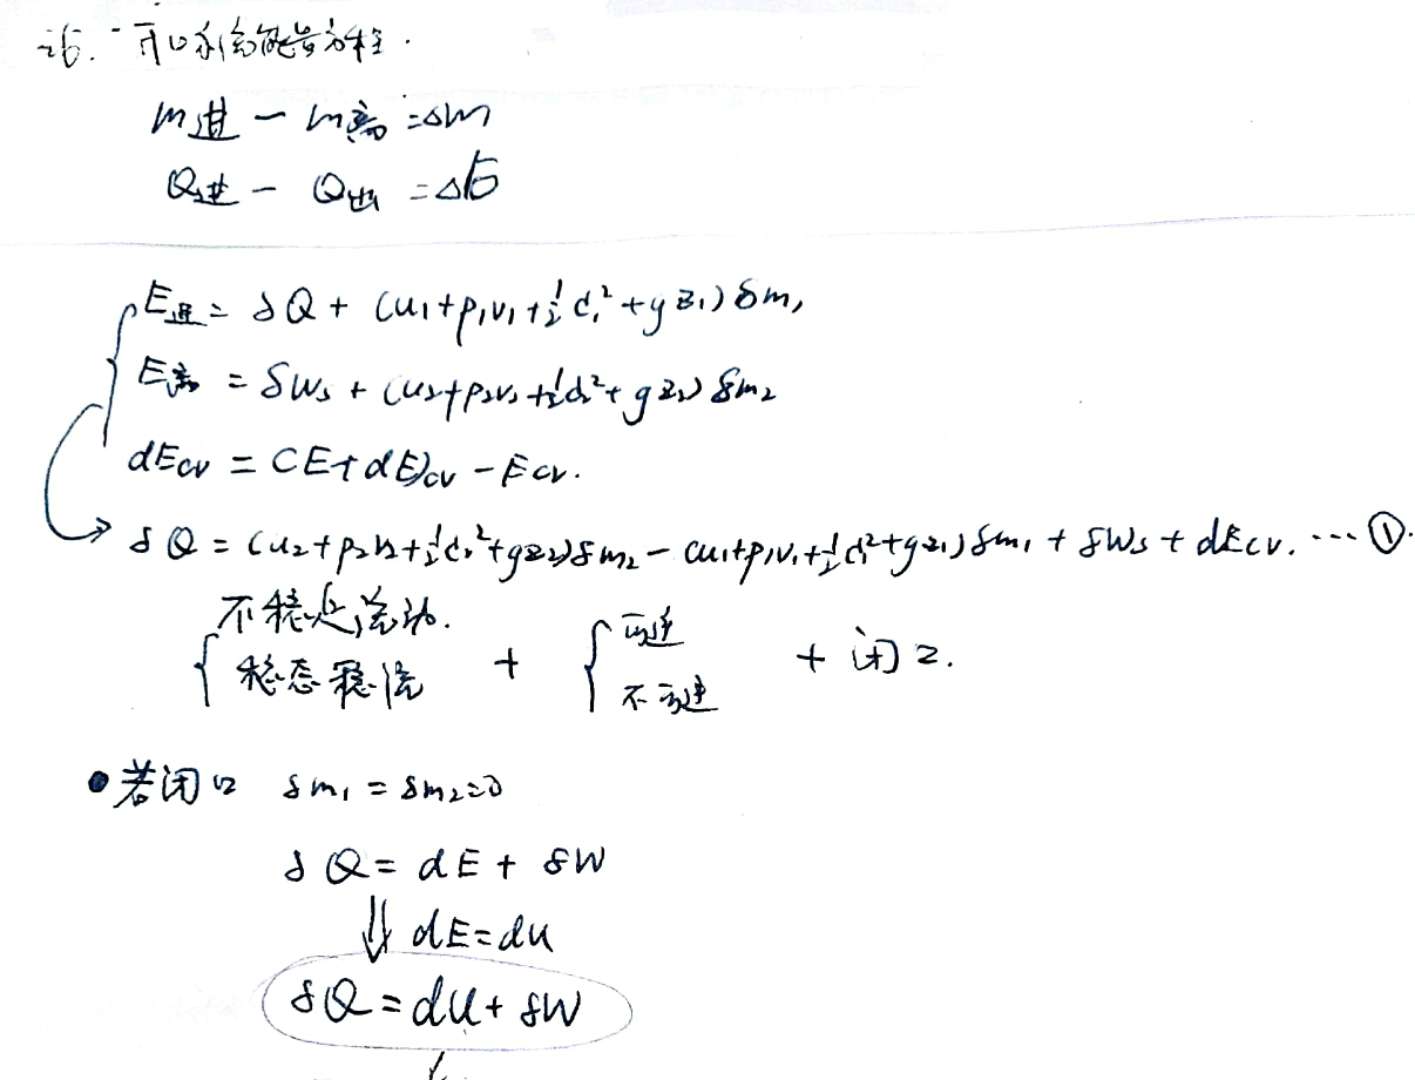 开口系统能量方程.
m进 - m离 = Δm
Q进 - Q出 = ΔE
E进 = δQ + (u₁+p₁v₁+½c₁²+gz₁)δm₁
E离 = δWs + (u₂+p₂v₂+½c₂²+gz₂)δm₂
dEcv = (E+dE)cv - Ecv.
δQ = (u₂+p₂v₂+½c₂²+gz₂)δm₂ - (u₁+p₁v₁+½c₁²+gz₁)δm₁ + δWs + dEcv. ···①.
不稳定流动.
稳态稳流 + { 可逆 不可逆 + 闭口.
●若闭口 δm₁ = δm₂=0
δQ = dE + δW
⇓ dE=du
δQ = du + δW